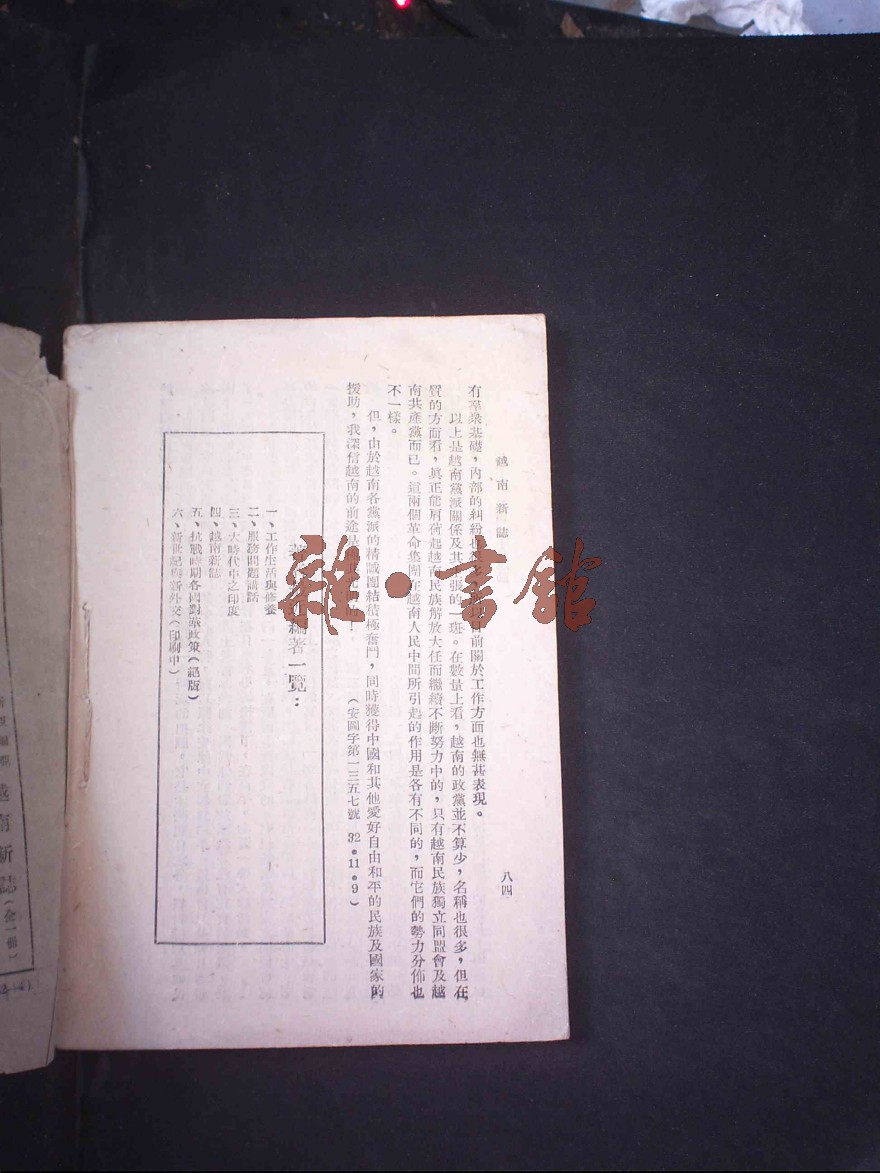 越南新誌
八四
有羣衆基礎,內部的糾紛也 前關於工作方面也無甚表現。
以上是越南黨派關係及其主張的一斑。在數量上看,越南的政黨並不算少,名稱也很多,但在
質的方面看,眞正能肩荷起越南民族解放大任而繼續不斷努力中的,只有越南民族獨立同盟會及越
南共產黨而已。這兩個革命集團在越南人民中間所引起的作用是各有不同的,而它們的勢力分佈也
不一樣。
但,由於越南各黨派的精誠團結積極奮鬥,同時獲得中國和其他愛好自由和平的民族及國家的
援助,我深信越南的前途是 的!
(安圖字第一三五七號 32.11.9)
編著一覽:
一、工作生活與修養
二、服務問題講話
三、大時代中之印度
四、越南新誌
五、抗戰時期各國對華政策(絕版)
六、新世紀與新外交(印刷中)
越南新誌(全一冊)
雜·書館